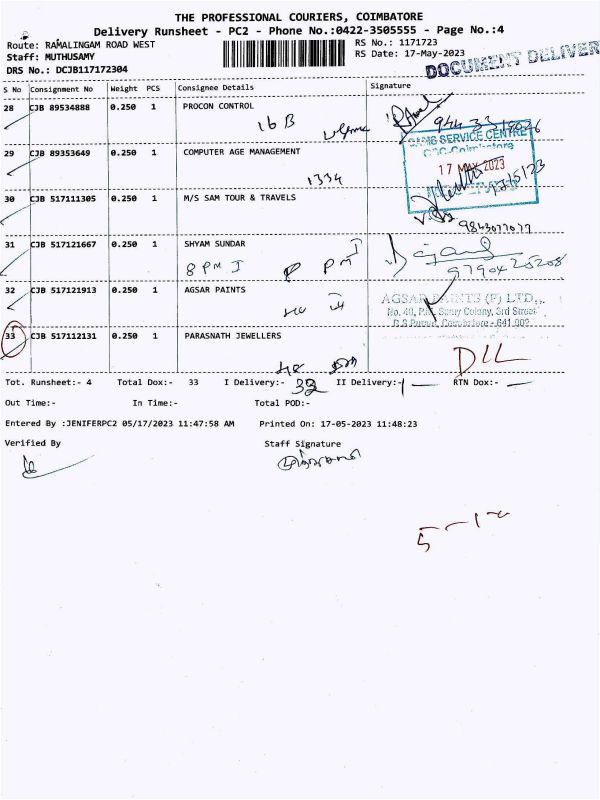 THE PROFESSIONAL COURIERS, COIMBATORE
Delivery Runsheet - PC2 - Phone No.:0422-3505555 - Page No.:4
Route: RAMALINGAM ROAD WEST
RS No.: 1171723
Staff: MUTHUSAMY
RS Date: 17-May-2023
DRS No.: DCJB117172304
DOCUMENT DELIVER
S No Consignment No Weight PCS Consignee Details Signature
28 CJB 89534888 0.250 1 PROCON CONTROL
16 B
SERVICE CENTRE
29 CJB 89353649 0.250 1 COMPUTER AGE MANAGEMENT
17 MAY 2023
1334
30 CJB 517111305 0.250 1 M/S SAM TOUR & TRAVELS
9843077077
31 CJB 517121667 0.250 1 SHYAM SUNDAR
8 PM I P PM I
9790425208
32 CJB 517121913 0.250 1 AGSAR PAINTS
AGSAR PAINTS (P) LTD.,
3rd Street
Coimbatore - 641 002
33 CJB 517112131 0.250 1 PARASNATH JEWELLERS
DLL
Tot. Runsheet:- 4 Total Dox:- 33 I Delivery:- 32 II Delivery:- 1 RTN Dox:-
Out Time:- In Time:- Total POD:-
Entered By :JENIFERPC2 05/17/2023 11:47:58 AM Printed On: 17-05-2023 11:48:23
Verified By Staff Signature